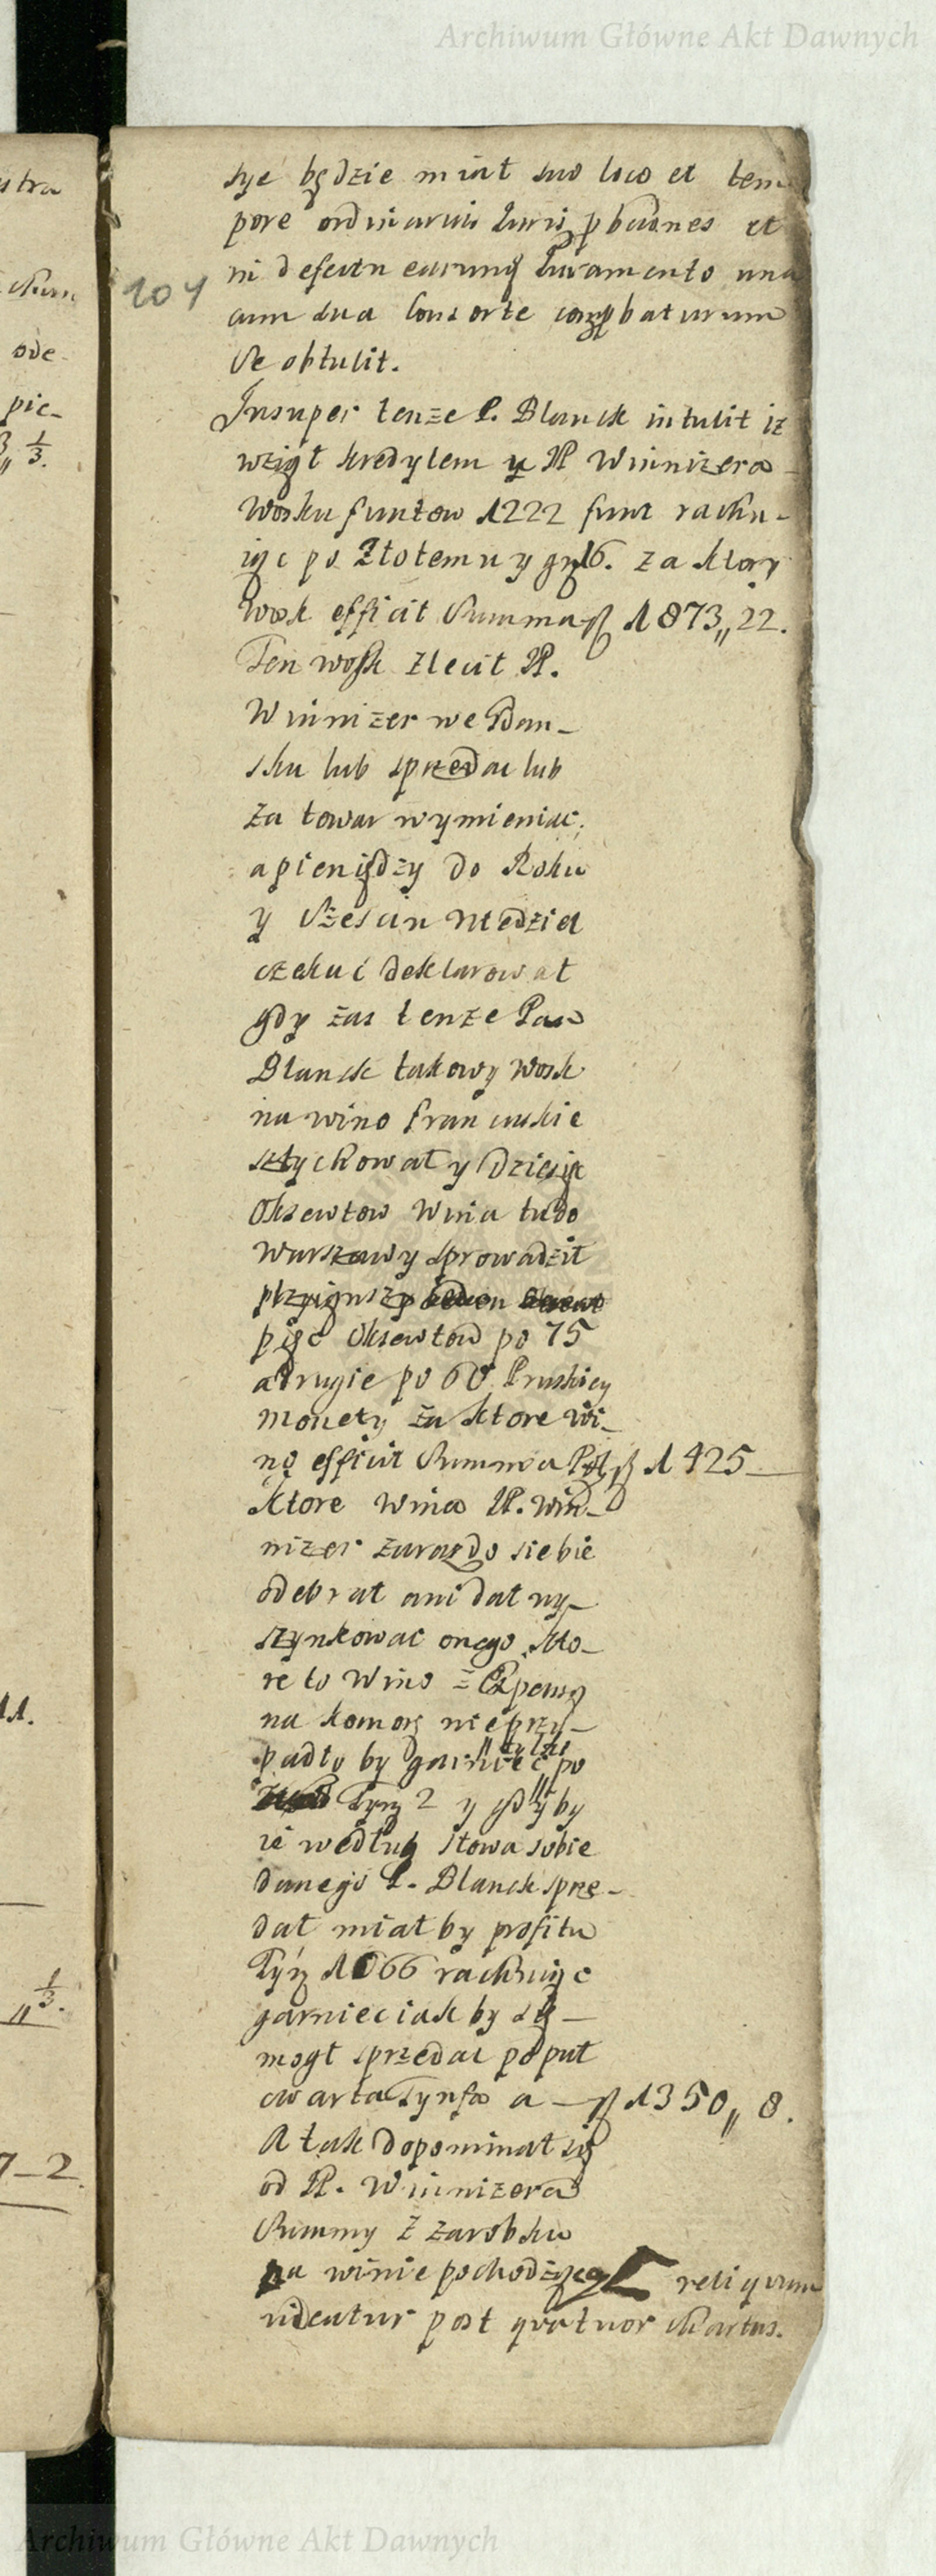 Archiwum Główne Akt Dawnych
stra
sye będzie miał suo loco et tem
pore ordinarius Juris pbaones et
in defectu earunq Juramento una
104
cum sua Consorte compbaturum
Se obtulit.
ode-
pie-
Insuper tenze P. Blanck intulit iz
wziął kredytem u JP Winnizera
Wosku funtow 1222 funt rachu-
iąc po Złotemu y gr 16. za ktory
wosk efficit Summa fl 1873,,22.
Ten wosk zlecił JP.
Winnizer we Gdan-
sku lub sprzedac lub
za towar wymieniac,
a pieniędzy do Roku
y Szesciu Niedziel
czekać deklarował
gdy zas tenze Pan
Blanck takowy wosk
na wino francuskie
sztychował y dziesięc
Oksewtow wina tu do
Warszawy sprowadził
pięc Oksewtow po 75
a drugie po 60 Pruskiey
monety za ktore wi-
no efficit Summa Pol fl 1425
Ktore wina JP. Win-
nizer zaraz do siebie
odebrał ani dał wy-
szynkowac onego, kto-
re to Wino z Expensą
na komorę nieprzy-
padło by garniec po
Tyn 2 y gdyby
ie według słowa sobie
danego P. Blanck sprze-
dał miałby profitu
Tyn 1066 rachuiąc
garniec iak by się
mogł sprzedac po puł
cwarta Tynfa a fl 1350,,8.
A tak dopominał się
od JP. Winnizera
Summy z zarobku
na winie pochodzącey reliqvum
videatur post qvatuor Chartas.
11.
7-2
Archiwum Główne Akt Dawnych